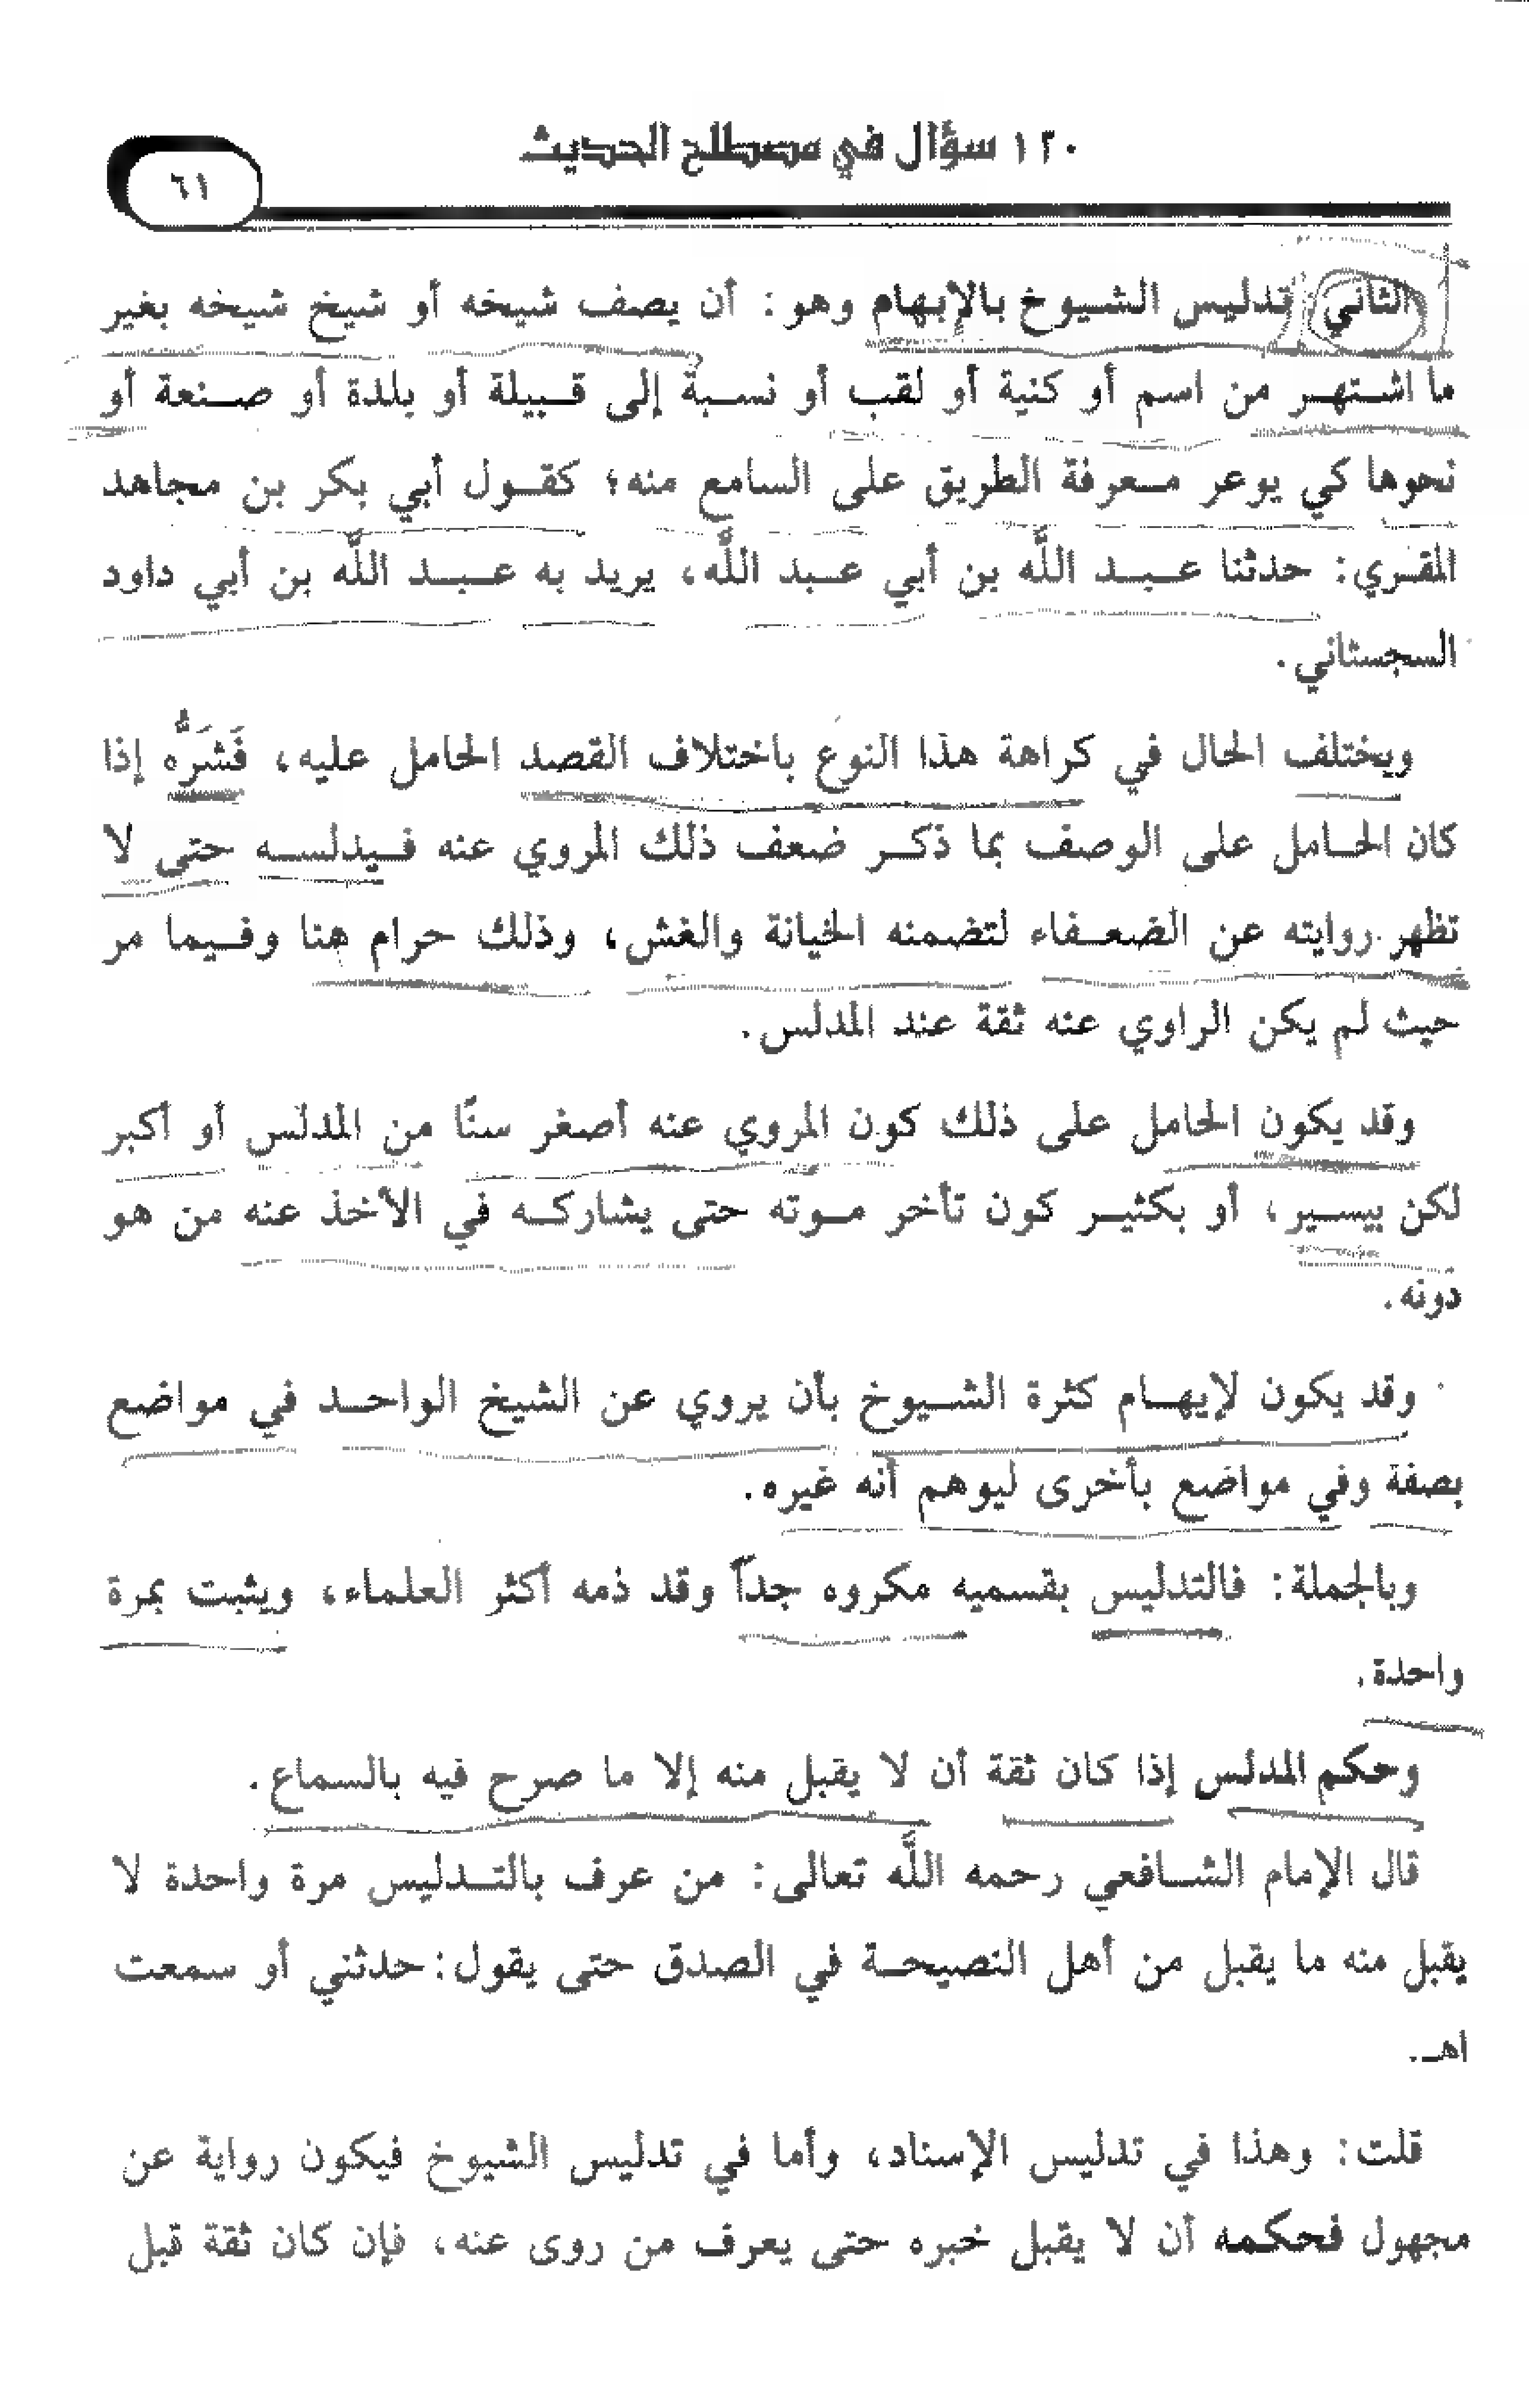 ١٢٠ سؤال في مصطلح الحديث
٦١
الثاني تدليس الشيوخ بالإبهام وهو: أن يصف شيخه أو شيخ شيخه بغير
ما اشتهر من اسم أو كنية أو لقب أو نسبة إلى قبيلة أو بلدة أو صنعة أو
نحوها كي يوعر معرفة الطريق على السامع منه؛ كقول أبي بكر بن مجاهد
المقري: حدثنا عبد اللَّه بن أبي عبد اللَّه، يريد به عبد اللَّه بن أبي داود
السجستاني.
ويختلف الحال في كراهة هذا النوع باختلاف القصد الحامل عليه، فَشَرُّه إذا
كان الحامل على الوصف بما ذكر ضعف ذلك المروي عنه فيدلسه حتى لا
تظهر روايته عن الضعفاء لتضمنه الخيانة والغش، وذلك حرام هنا وفيما مر
حيث لم يكن الراوي عنه ثقة عند المدلس.
وقد يكون الحامل على ذلك كون المروي عنه أصغر سنًا من المدلس أو أكبر
لكن بيسير، أو بكثير كون تأخر موته حتى يشاركه في الأخذ عنه من هو
دونه.
وقد يكون لإيهام كثرة الشيوخ بأن يروي عن الشيخ الواحد في مواضع
بصفة وفي مواضع بأخرى ليوهم أنه غيره.
وبالجملة: فالتدليس بقسميه مكروه جداً وقد ذمه أكثر العلماء، ويثبت بمرة
واحدة.
وحكم المدلس إذا كان ثقة أن لا يقبل منه إلا ما صرح فيه بالسماع.
قال الإمام الشافعي رحمه اللَّه تعالى: من عرف بالتدليس مرة واحدة لا
يقبل منه ما يقبل من أهل النصيحة في الصدق حتى يقول: حدثني أو سمعت
اهـ.
قلت: وهذا في تدليس الإسناد، وأما في تدليس الشيوخ فيكون رواية عن
مجهول فحكمه أن لا يقبل خبره حتى يعرف من روى عنه، فإن كان ثقة قبل